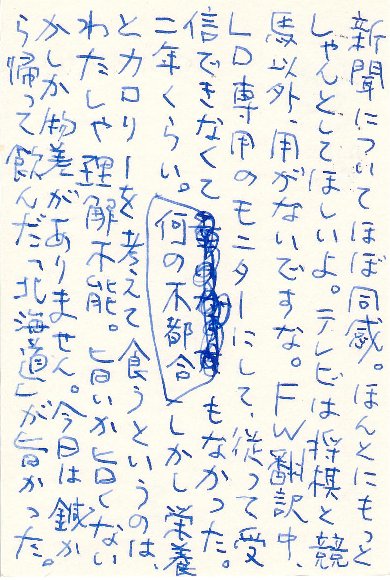 新聞についてほぼ同感。ほんとにもっと
しゃんとしてほしいよ。テレビは将棋と競
馬以外、用がないですな。FW翻訳中、
LD専用のモニターにして、従って受
信できなくて何の不都合もなかった。
二年くらい。しかし栄養
とカロリーを考えて食うというのは
わたしゃ理解不能。旨いか旨くない
かしか物差がありません。今日は鍼か
ら帰って飲んだ「北海道」が旨かった。